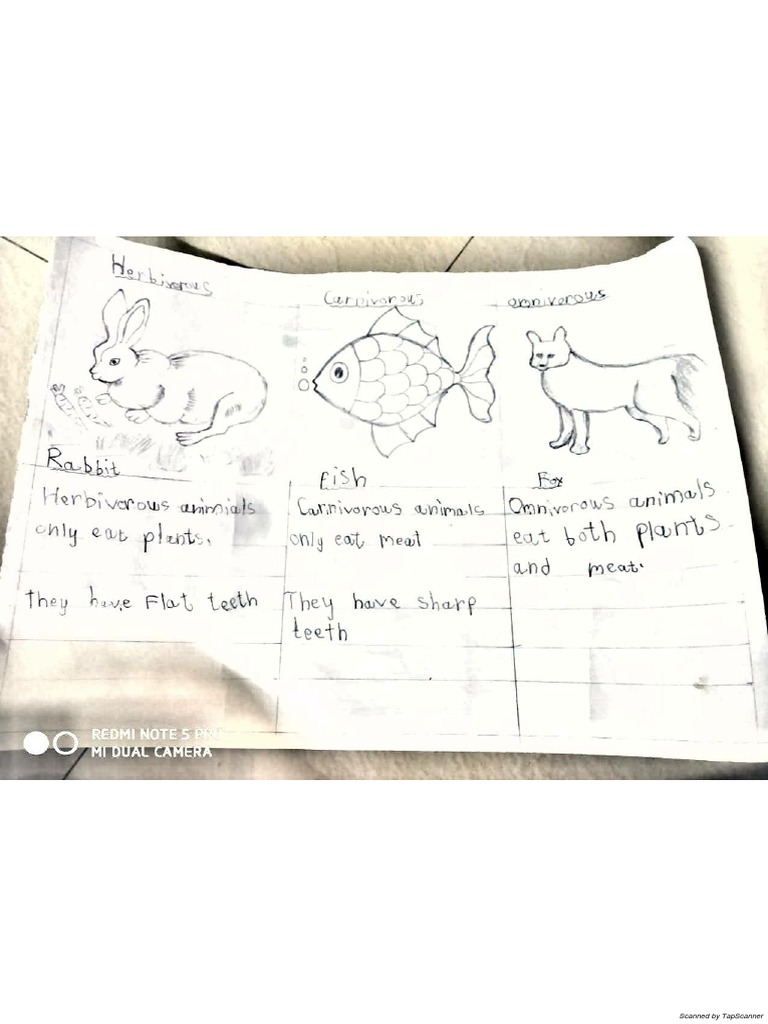 Herbivorous
Carnivorous
omnivorous
Rabbit
Fish
Fox
Herbivorous animials
only eat plants.
They have Flat teeth
Carnivorous animals
only eat meat
They have sharp
teeth
Omnivorous animals
eat both plants
and meat.
REDMI NOTE 5 PRO
MI DUAL CAMERA
Scanned by TapScanner